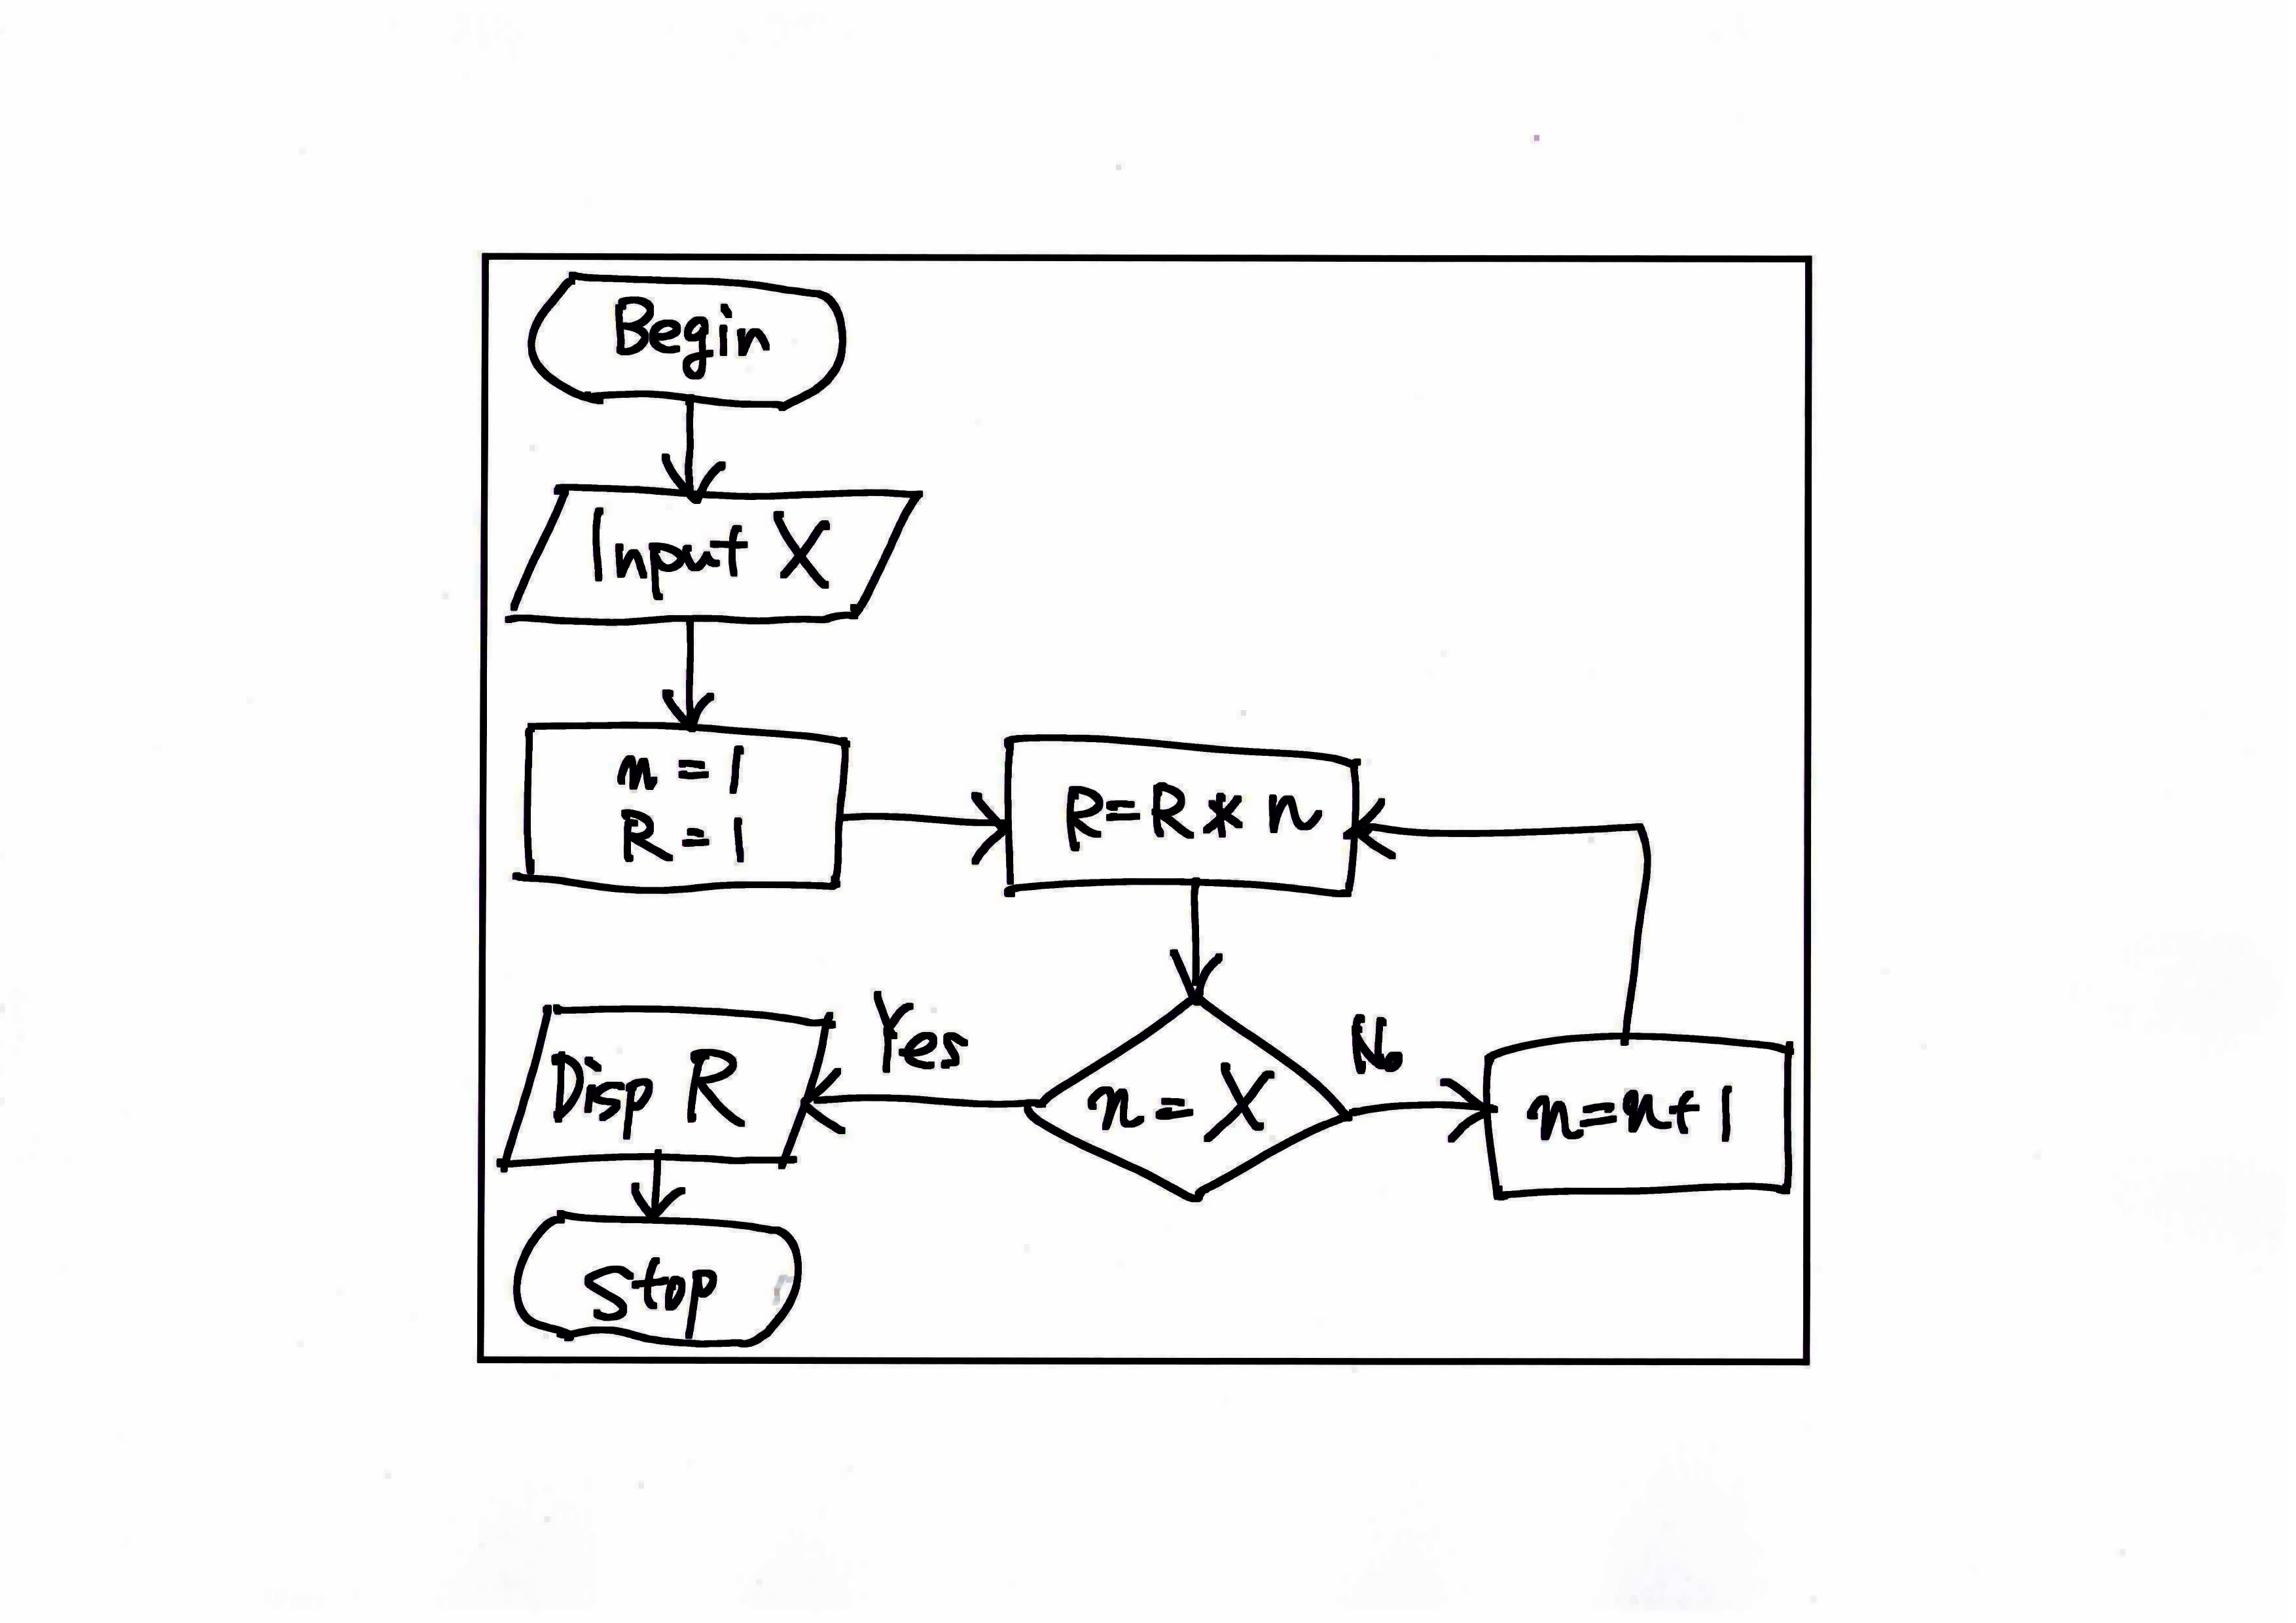 Begin
Input X
n = 1
R = 1
R=R * n
n = X
Yes
No
n=n+1
Disp R
Stop